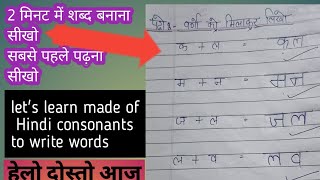 2 मिनट में शब्द बनाना
सीखो
सबसे पहले पढ़ना
सीखो
let's learn made of
Hindi consonants
to write words
हेलो दोस्तो आज
को मिलाकर लिखो
क + ल = कल
म + न = मन
ज + ल = जल
ल + व = लव